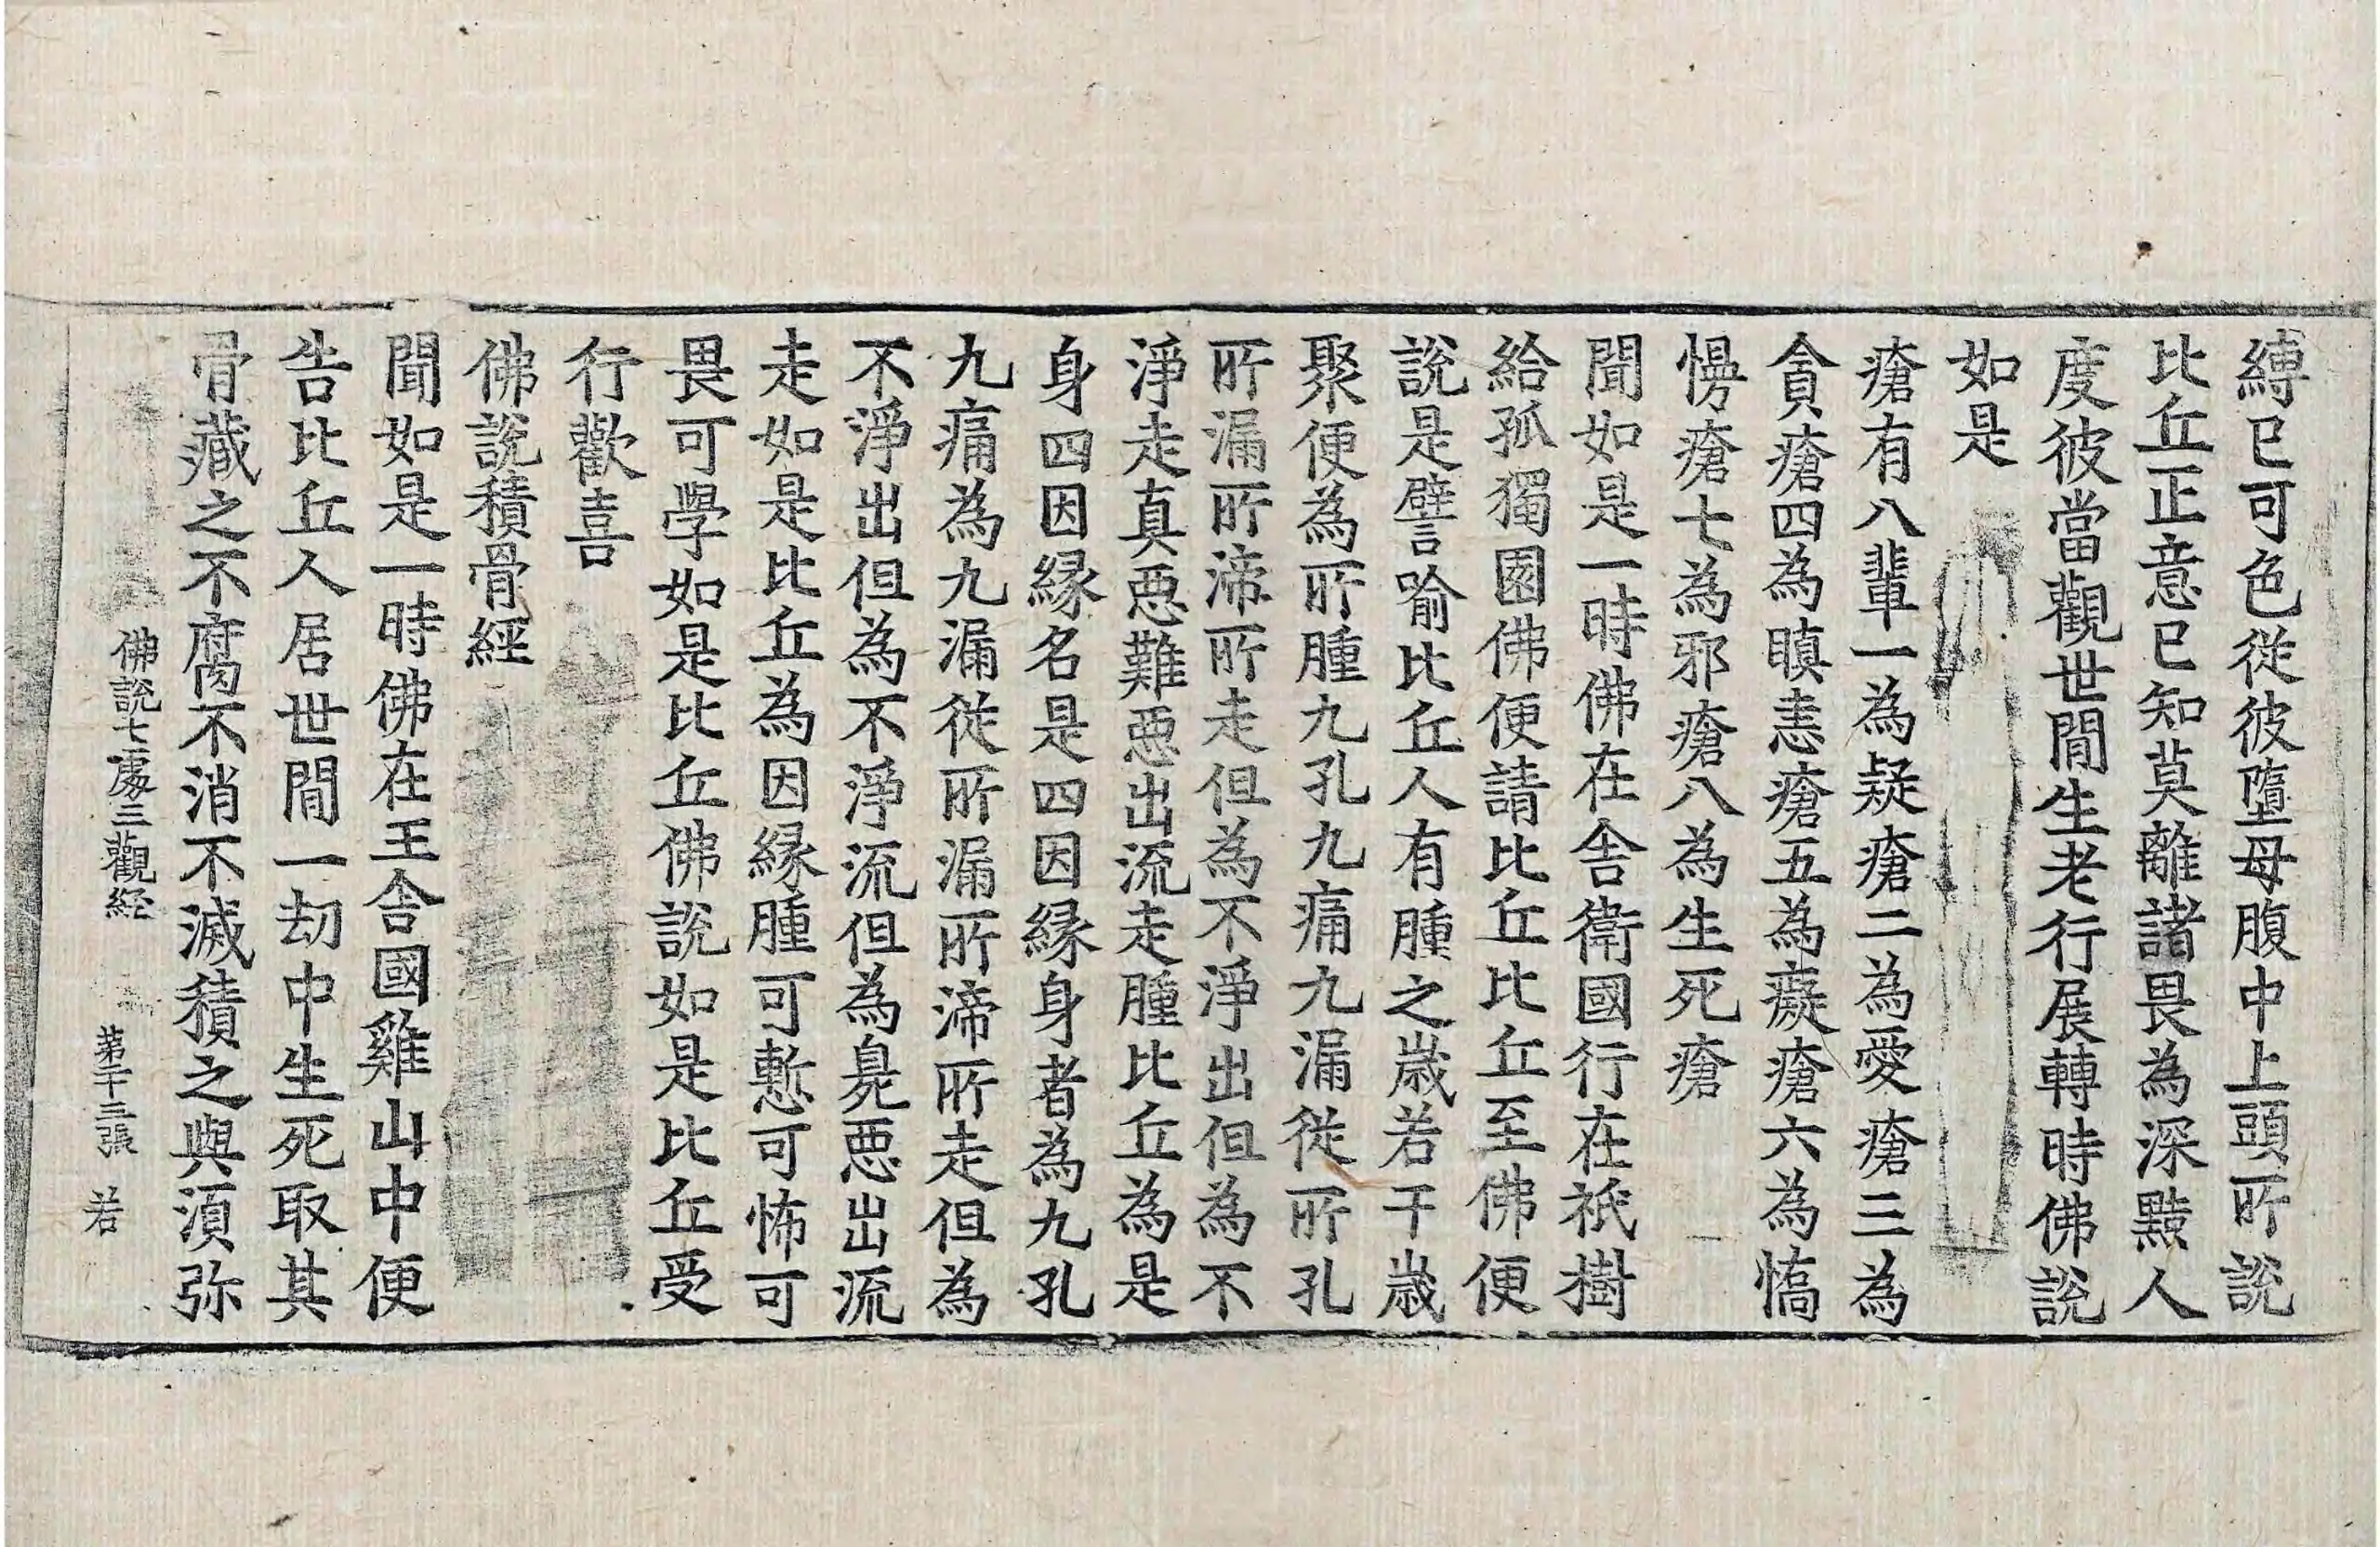 縛已可色從彼墮母腹中上頭所說
比丘正意已知莫離諸畏為深黠人
度彼當觀世間生老行展轉時佛說
如是
瘡有八輩一為疑瘡二為愛瘡三為
貪瘡四為瞋恚瘡五為癡瘡六為憍
慢瘡七為邪瘡八為生死瘡
聞如是一時佛在舍衛國行在祇樹
給孤獨園佛便請比丘比丘至佛便
說是譬喻比丘人有腫之歲若干歲
聚便為所腫九孔九痛九漏從所孔
所漏所渧所走但為不淨出但為不
淨走真惡難惡出流走腫比丘為是
身四因緣名是四因緣身者為九孔
九痛為九漏從所漏所渧所走但為
不淨出但為不淨流但為臭惡出流
走如是比丘為因緣腫可慙可怖可
畏可學如是比丘佛說如是比丘受
行歡喜
佛說積骨經
聞如是一時佛在王舍國雞山中便
告比丘人居世間一劫中生死取其
骨藏之不腐不消不滅積之與湏弥
佛說七處三觀経　第二十三張　若